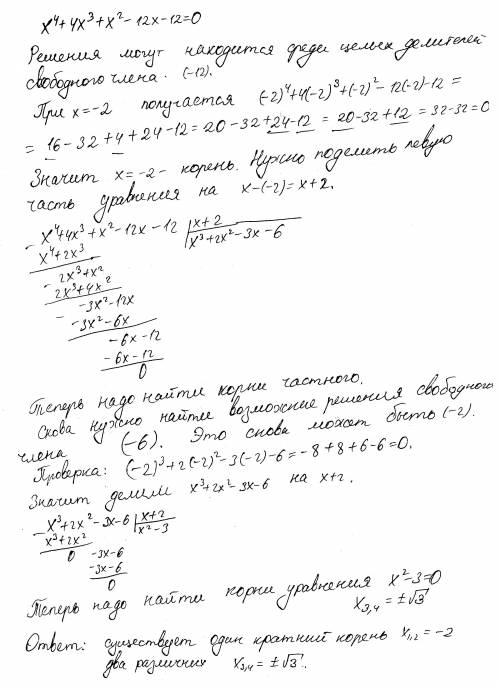 x⁴+4x³+x²-12x-12=0
Решения могут находится среди целых делителей
свободного члена. (-12).
При x=-2 получается (-2)⁴+4(-2)³+(-2)²-12(-2)-12=
=16-32+4+24-12=20-32+24-12=20-32+12=32-32=0
Значит x=-2- корень. Нужно поделить левую
часть уравнения на x-(-2)=x+2.
- x⁴+4x³+x²-12x-12 | x+2
x⁴+2x³ x³+2x²-3x-6
- 2x³+x²
2x³+4x²
- -3x²-12x
-3x²-6x
- -6x-12
-6x-12
0
Теперь надо найти корни частного.
Снова нужно найти возможные решения свободного
члена (-6). Это снова может быть (-2).
Проверка: (-2)³+2(-2)²-3(-2)-6=-8+8+6-6=0.
Значит делим x³+2x²-3x-6 на x+2.
- x³+2x²-3x-6 | x+2
x³+2x² x²-3
0 -3x-6
-3x-6
0
Теперь надо найти корни уравнения x²-3=0
x₃,₄=±√3
Ответ: существует один кратний корень x₁,₂=-2
два различних x₃,₄=±√3.